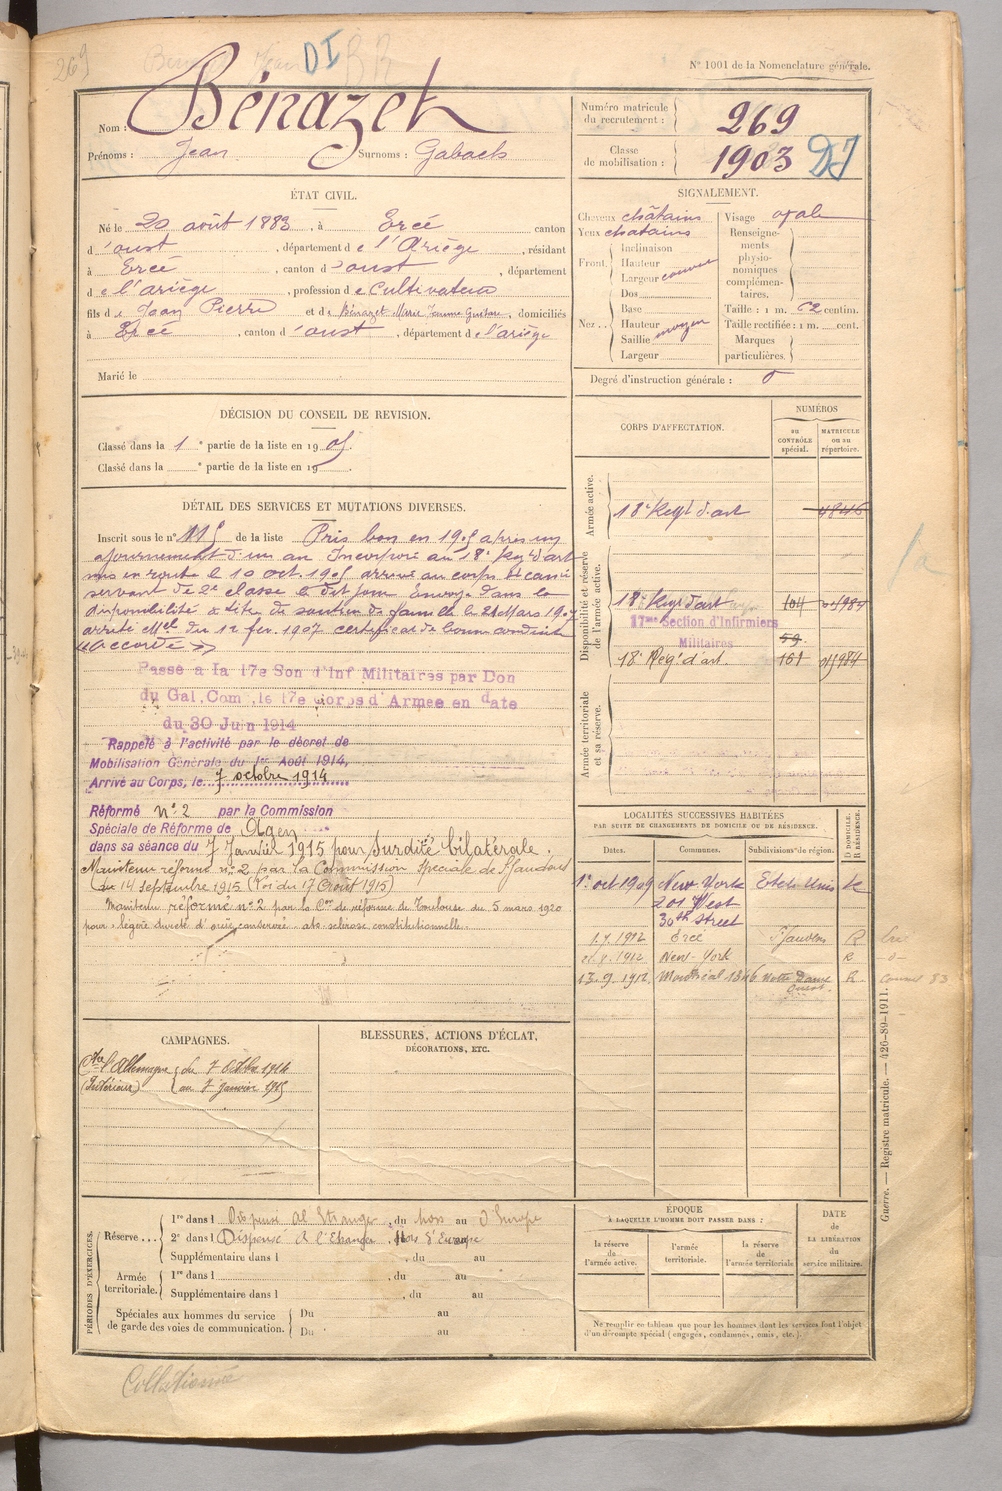 269
DI
N° 1001 de la Nomenclature générale.
Nom : Bénazet
Prénoms : Jean Surnoms : Gabach
Numéro matricule du recrutement : 269
Classe de mobilisation : 1903 DI
ÉTAT CIVIL.
Né le 20 août 1883, à Ercé canton
d'oust, département de l'Ariège, résidant
à Ercé, canton d'oust, département
de l'ariège, profession de Cultivateur
fils de Jean Pierre et de Bénazet Marie Jeanne, domiciliés
à Ercé, canton d'oust, département de l'ariège
Marié le
SIGNALEMENT.
Cheveux châtains Visage ovale
Yeux chatains
Front. Inclinaison
Hauteur
Largeur
Nez... Dos
Base
Hauteur
Saillie moyen
Largeur
Renseignements physionomiques complémentaires.
Taille : 1 m. 62 centim.
Taille rectifiée : 1 m. cent.
Marques particulières.
Degré d'instruction générale :
DÉCISION DU CONSEIL DE REVISION.
Classé dans la 1e partie de la liste en 1905.
Classé dans la e partie de la liste en 19
DÉTAIL DES SERVICES ET MUTATIONS DIVERSES.
Inscrit sous le n° de la liste Pris bon en 1905 après un
ajournement d'un an Incorporé au 18e Reg d'art
mis en route le 10 oct. 1905 arrivé au corps et
servant de 2e classe le dit jour Envoyé dans la
disponibilité à titre de soutien de famille le 21 Mars 1907
arrêté Mel du 12 fev. 1907 certificat de bonne conduite
"accordé"
Passé a la 17e Son d'Inf Militaires par Don
du Gal. Com. le 17e corps d'Armee en date
du 30 Juin 1914
Rappelé à l'activité par le décret de
Mobilisation Générale du 1er Août 1914,
Arrivé au Corps, le 7 octobre 1914
Réformé n° 2 par la Commission
Spéciale de Réforme de Agen
dans sa séance du 7 Janvier 1915 pour surdité bilatérale.
Maintenu réformé n° 2 par la Commission Spéciale de St Gaudens
du 14 septembre 1915 (Loi du 17 Août 1915)
Maintenu réformé n° 2 par la Con de réforme de Toulouse du 5 mars 1920
pour : légère dureté d'ouïe conservée
CORPS D'AFFECTATION.
NUMÉROS
au CONTRÔLE spécial.
MATRICULE ou au répertoire.
Armée active.
18e Regt d'art 4846
Disponibilité et réserve de l'armée active.
18e Regt d'art 104
17me Section d'Infirmiers
Militaires 59
18e Reg' d'art. 161
Armée territoriale et sa réserve.
LOCALITÉS SUCCESSIVES HABITÉES
PAR SUITE DE CHANGEMENTS DE DOMICILE OU DE RÉSIDENCE.
Dates. Communes. Subdivions de région. D DOMICILE. R RÉSIDENCE.
1er oct 1909 New York Etats Unis
201 West
30th Street
1.7.1912 Ercé St Gaudens R
New-York R
13.9.1912 Montréal 1346 Notre Dame Ouest R
CAMPAGNES.
Ctre l'Allemagne du 7 Octobre 1914
(Intérieur) au 7 janvier 1915
BLESSURES, ACTIONS D'ÉCLAT,
DÉCORATIONS, ETC.
Guerre. — Registre matricule. — 420-89-1911.
PÉRIODES D'EXERCICES.
Réserve... 1re dans l Dispensé à l'Etranger, du hors au d'Europe
2e dans l Dispensé à l'Etranger, Hors d'Europe
Supplémentaire dans l , du au
Armée territoriale. 1re dans l , du au
Supplémentaire dans l , du au
Spéciales aux hommes du service
de garde des voies de communication. Du au
Du au
ÉPOQUE
À LAQUELLE L'HOMME DOIT PASSER DANS :
la réserve de l'armée active.
l'armée territoriale.
la réserve de l'armée territoriale
DATE DE LA LIBÉRATION du service militaire.
Ne remplir ce tableau que pour les hommes dont les services font l'objet
d'un décompte spécial (engagés, condamnés, omis, etc.).
Collationné